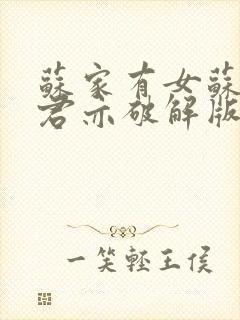 蘇家有女蘇
君亦破解版
一笑輕王侯